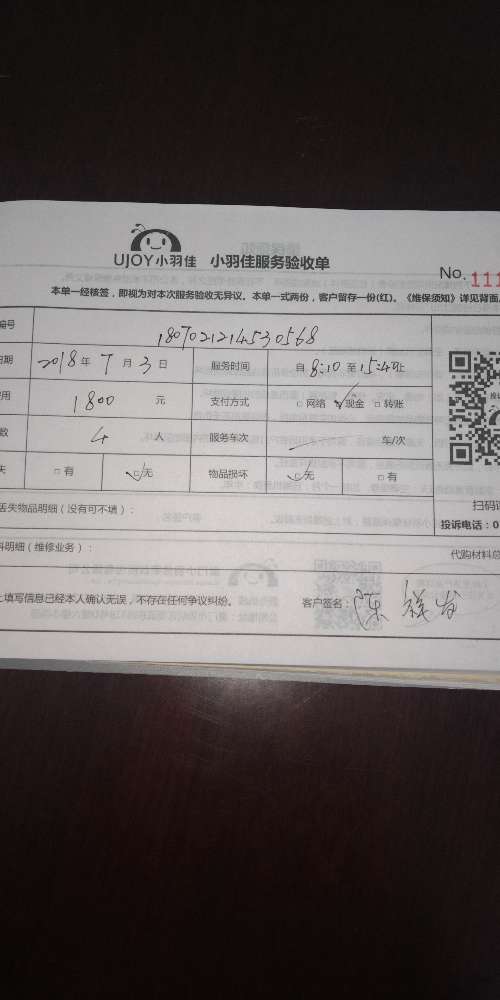 UJOY小羽佳 小羽佳服务验收单
No. 111
本单一经核签，即视为对本次服务验收无异议。本单一式两份，客户留存一份(红)。《维保须知》详见背面。
编号 1807021214530568
日期 2018年 7月 3日 服务时间 自 8:10 至 15:40止
费用 1800 元 支付方式 □ 网络 ☑ 现金 □ 转账
数 4 人 服务车次 车/次
失 □ 有 ☑ 无 物品损坏 ☑ 无 □ 有
扫码
丢失物品明细（没有可不填）： 投诉电话：0
料明细（维修业务）： 代购材料总
上填写信息已经本人确认无误，不存在任何争议纠纷。 客户签名：陈